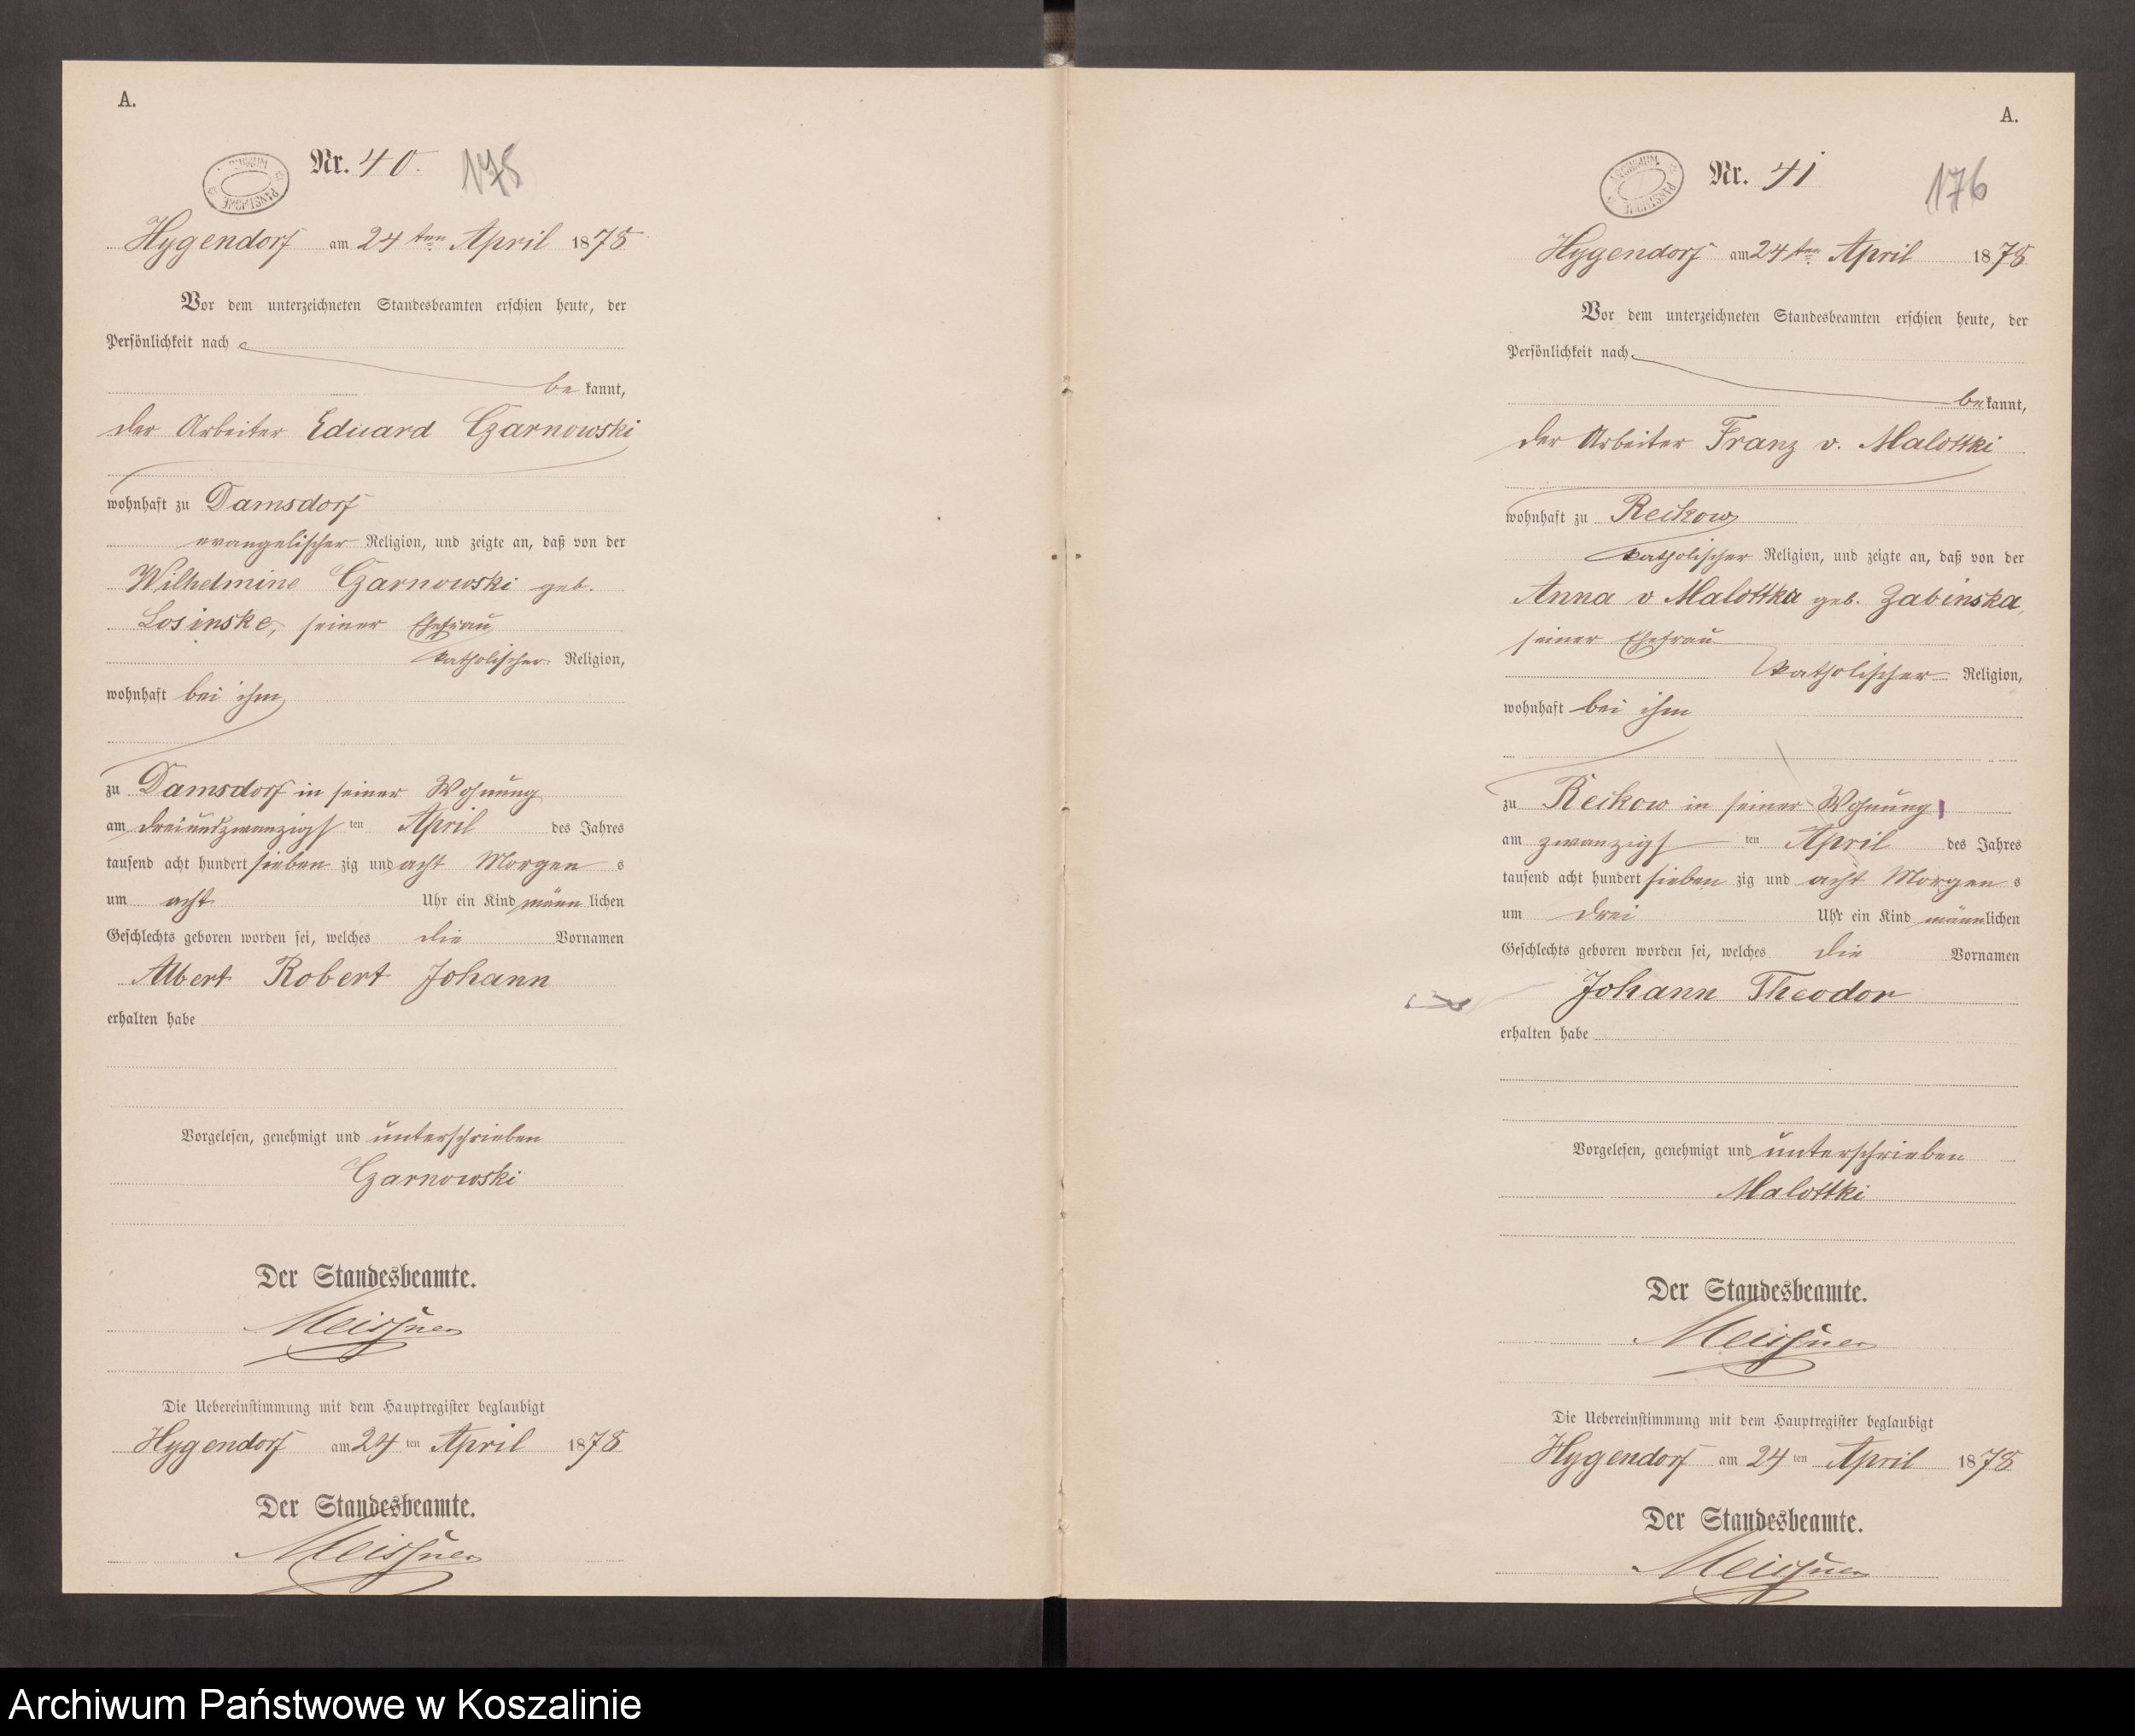 A.
Nr. 40. 175
Hygendorf am 24ten April 1878
Vor dem unterzeichneten Standesbeamten erschien heute, der
Persönlichkeit nach
be kannt,
der Arbeiter Eduard Czarnowski
wohnhaft zu Damsdorf
evangelischer Religion, und zeigte an, daß von der
Wilhelmine Czarnowski geb.
Losinske, seiner Ehefrau
katholischer Religion,
wohnhaft bei ihm
zu Damsdorf in seiner Wohnung
am dreiundzwanzigsten April des Jahres
tausend acht hundert sieben zig und acht Morgen s
um acht Uhr ein Kind männ lichen
Geschlechts geboren worden sei, welches die Vornamen
Albert Robert Johann
erhalten habe
Vorgelesen, genehmigt und unterschrieben
Czarnowski
Der Standesbeamte.
Meissner
Die Uebereinstimmung mit dem Hauptregister beglaubigt
Hygendorf am 24 ten April 1878
Der Standesbeamte.
Meissner
A.
ARCHIWUM PAŃSTWOWE
Nr. 41 176
Hygendorf am 24ten April 1878
Vor dem unterzeichneten Standesbeamten erschien heute, der
Persönlichkeit nach
be kannt,
der Arbeiter Franz v. Malottki
wohnhaft zu Reckow
katholischer Religion, und zeigte an, daß von der
Anna v Malottka geb. Zabinska,
seiner Ehefrau
katholischer Religion,
wohnhaft bei ihm
zu Reckow in seiner Wohnung
am zwanzigsten April des Jahres
tausend acht hundert sieben zig und acht Morgen s
um drei Uhr ein Kind männlichen
Geschlechts geboren worden sei, welches die Vornamen
Johann Theodor
erhalten habe
Vorgelesen, genehmigt und unterschrieben
Malottki
Der Standesbeamte.
Meissner
Die Uebereinstimmung mit dem Hauptregister beglaubigt
Hygendorf am 24 ten April 1878
Der Standesbeamte.
Meissner
Archiwum Państwowe w Koszalinie